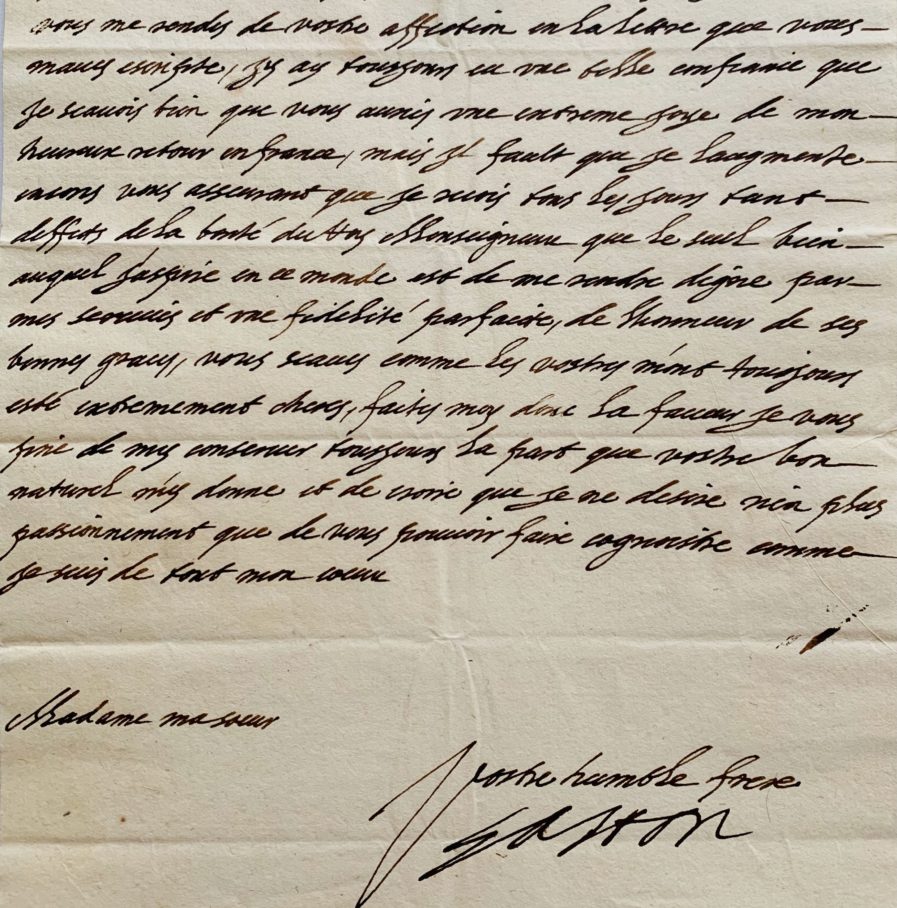 vous me rendes de vostre affection en la lettre que vous
maves escripte, Jy ay tousjours eu une telle confiance que
Je scavois bien que vous auries une extreme Joye de mon
heureux retour en france, mais Jl fault que Je laugmente
encores vous asseurant que Je recois tous les Jours tant
deffects de la bonté du Monseigneur que le seul bien
auquel J'aspire en ce monde est de me rendre digne par
mes services et une fidelité parfaicte, de l'honneur de ses
bonnes graces, vous scaves comme les vostres m'ont tousjours
esté extremement cheres, faites moy donc la faveur Je vous
prie de my conserver tousjours la part que vostre bon
naturel m'y donne et de croire que Je ne desire rien plus
passionnement que de vous pouvoir faire cognoistre comme
Je suis de tout mon coeur
Madame ma soeur
Vostre humble frere
Gaston